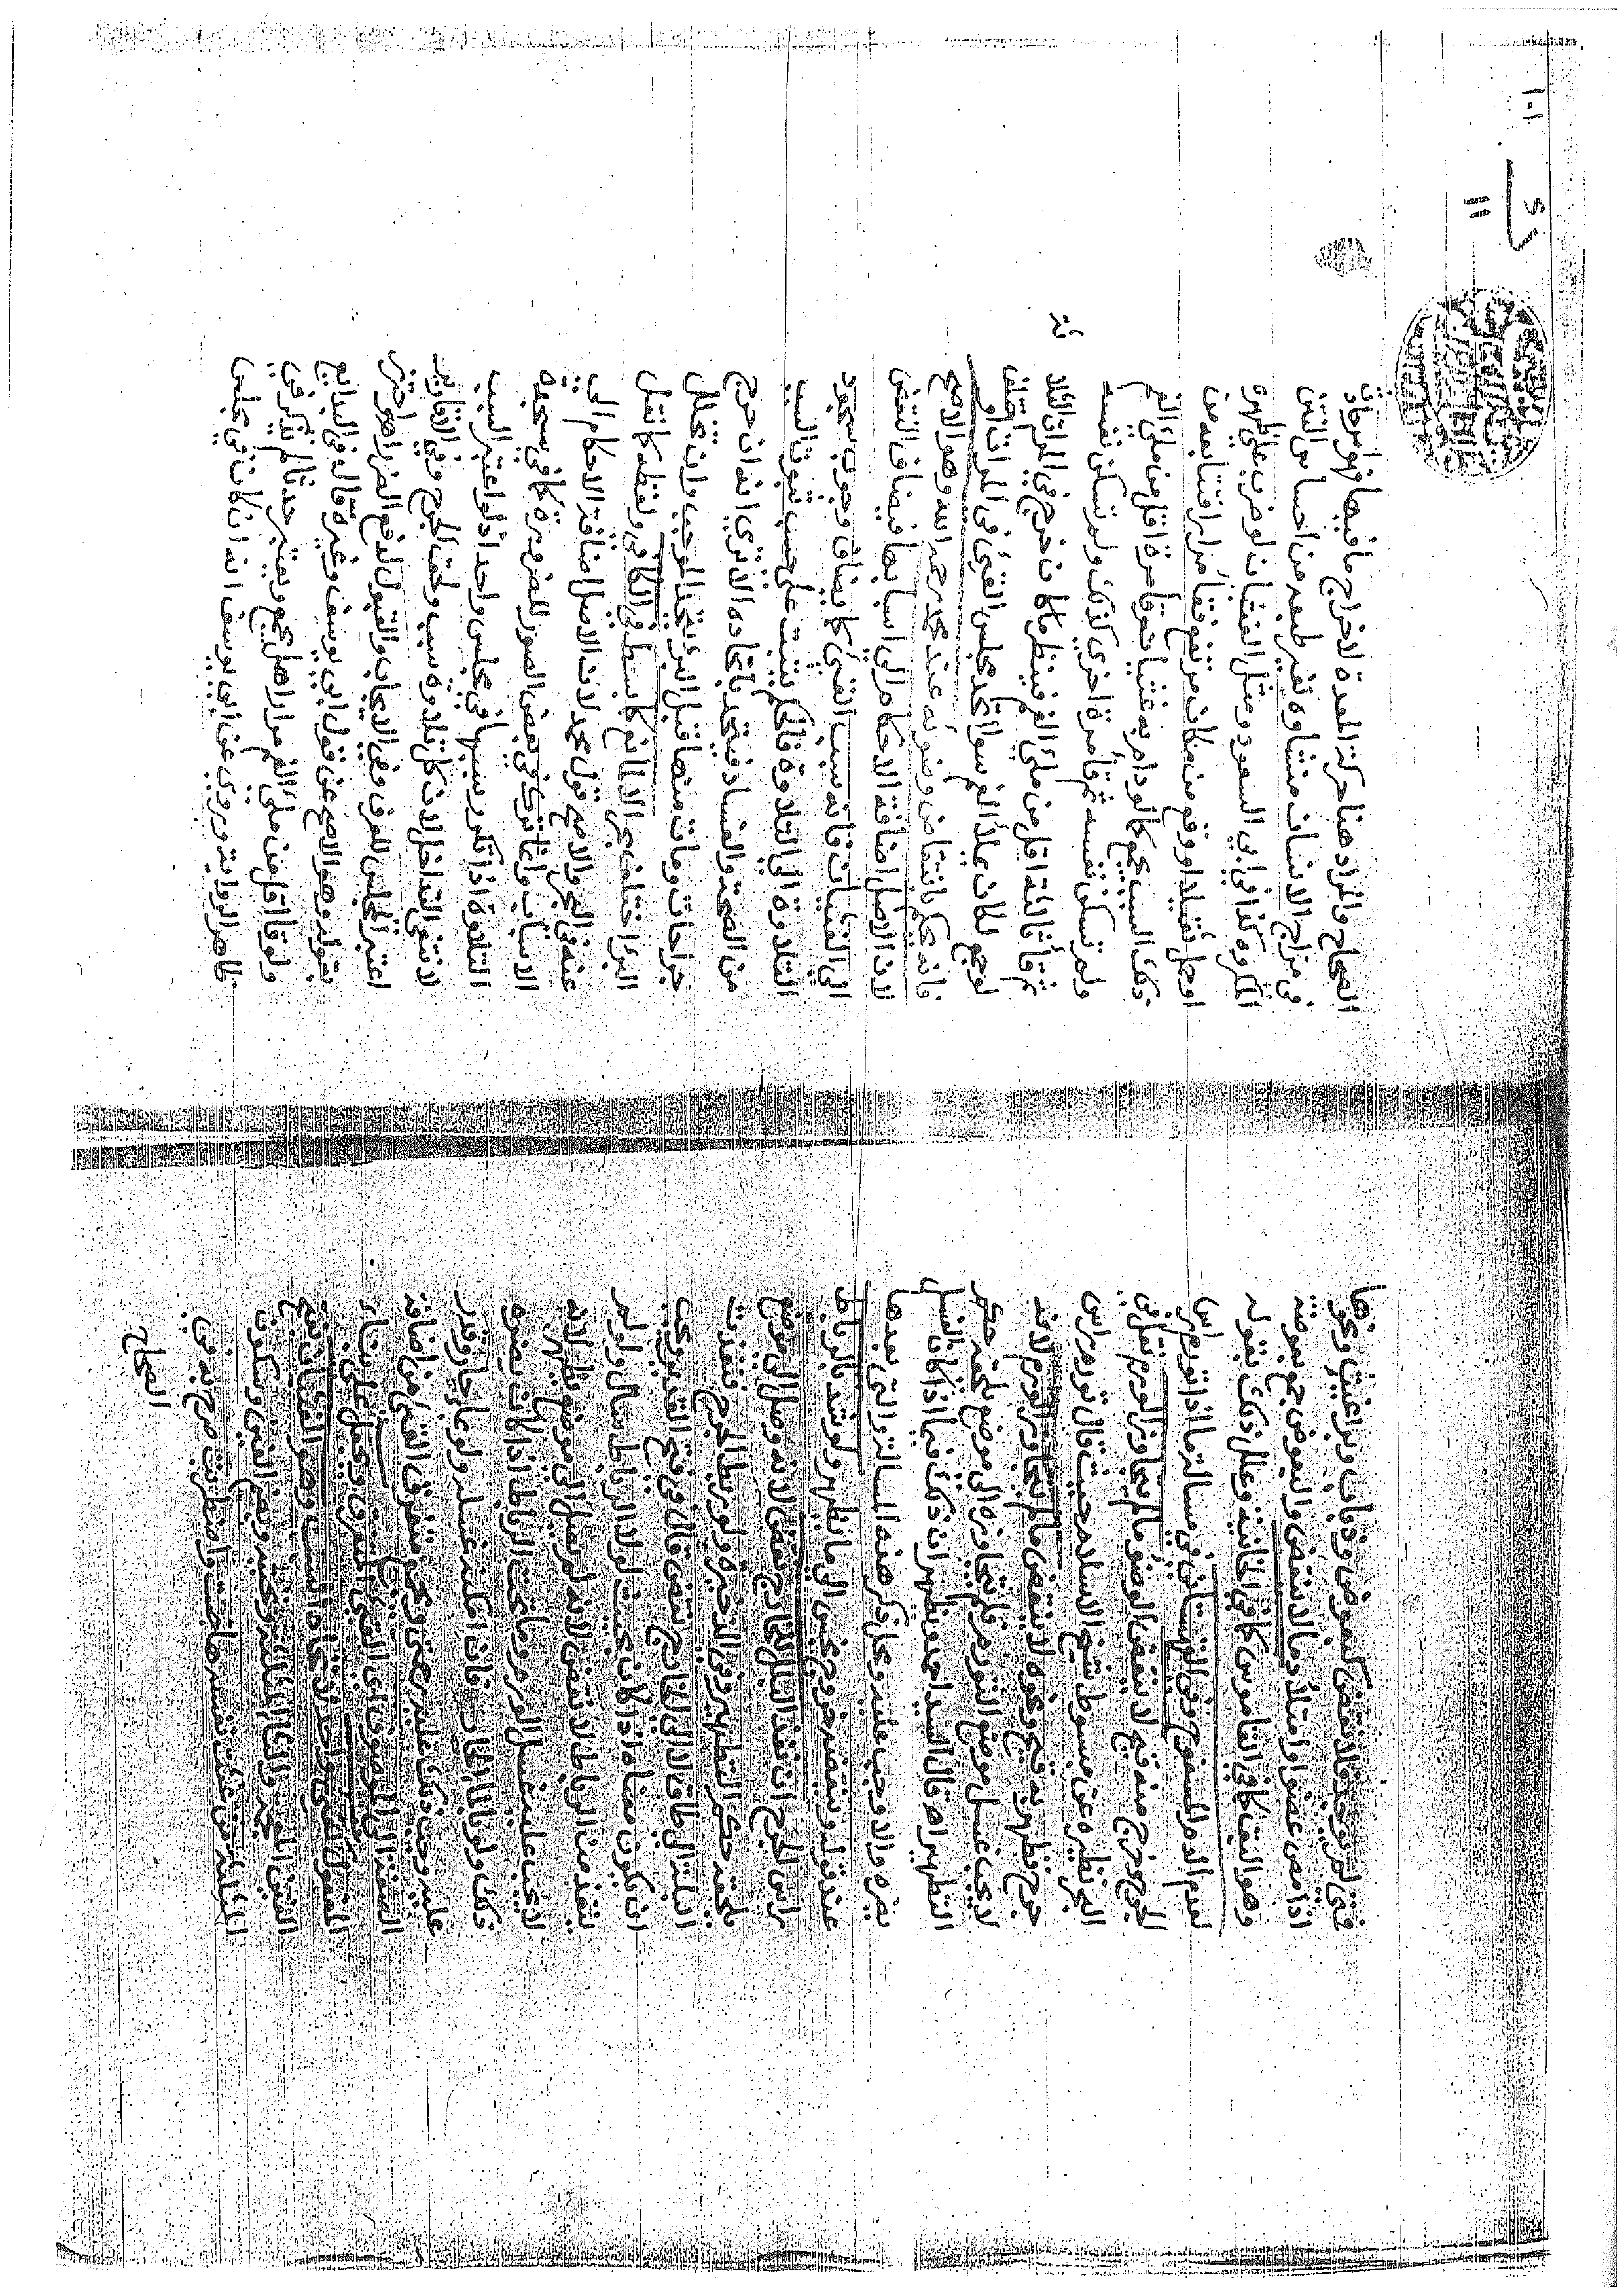 فتى لم يوجد فلا نقض كبعوض وذباب وبراغيث ونحوها
اذا مص عضوا وامتلأ دما لا ينقض والبعوض جمع بعوضة
وهو البق كما في القاموس كما في الخانية وعلل ذلك بقوله
لعدم الدم المسفوح وفي القهستاني في مسالة ما اذا تورم راس
الجرح وخرج منه قيح لا ينقض الوضوء ما لم يتجاوز الورم نقل في
البحر نظيره عن مبسوط شيخ الاسلام حيث قال تورم راس
جرح فظهر به قيح ونحوه لا ينقض ما لم يتجاوز الورم لانه
لا يجب غسل موضع التورم فلم يتجاوزه الى موضع يلحقه حكم
التطهير اه قال السيد احمد يظهر ان ذلك فيما اذا كان الغسل
يضره والا وجب عليه ومحل ذكر هذه المسالة والتي بعدها
عند قوله وينقضه خروج نجس الى ما يطهر ولو شد بالرباط
راس الجرح ان نفذ البلل للخارج نقض لانه وصل الى موضع
يلحقه حكم التطهير وفي الذخيرة ولو ربط الجرح فنفذت
البلة الى طاق لا الى الخارج نقض قال في فتح القدير ويجب
ان يكون معناه اذا كان بحيث لولا الرباط سال ولو لم
ينفذ من الرباط لا نقض لانه لم يسل الى موضع يطهر لانه
لا يجب عليه غسل ما تحت الرباط اذا كان يضره
ذلك ولو بالماء الحار فان امكنه غسله ولو بماء حار وقدر
عليه وجب ذلك عليه ويجمع متفرق القيئ من اضافة
الصفة الى الموصوف اي القيئ المتفرق ويجعل بناء
المفعول كقيئ واحد لاتحاد السبب وهو الغثيان بفتح
الغين المعجمة والثاء المثلثة وتحتية وبضم الغين وسكون
المثلثة من غثت نفسه هاجت واضطربت صرح به في
الصحاح
الصحاح والمراد هنا حركة المعدة لاخراج ما فيها فهو امر حادث
في مزاج الانسان منشاوه تغير طبعه من احساس النتن
المكروه كذا في ابي السعود ومثل الغثيان لو ضرب على ظهره
او حمل ثقيلا او وقع من مكان مرتفع فقاء مرارا فتتابعه من
ذلك السبب يجمع كما لو دام به غثيان حتى قاء مرة اقل من ملئ الفم
ولم تسكن نفسه ثم قاء مرة اخرى كذلك ولم تسكن نفسه
ثم قاء ثالثة اقل من ملئ الفم فينظر ما كان خرج في المرات الثلاثة
لو جمع لكان يملأ الفم سواء اتحد مجلس القيئ في المرات او اختلف
فانه يحكم بانتقاض وضوئه عند محمد رحمه الله وهو الاصح
لان الاصل اضافة الاحكام الى اسبابها فيضاف النقض
الى الغثيان فانه سبب القيئ كما يضاف وجوب سجود
التلاوة الى التلاوة فالحكم يثبت على حسب ثبوت السبب
من الصحة والفساد فيتحد باتحاده الا ترى انه ان جرح
جراحات ومات منها قبل البرء يتحد الموجب وان تخلل
البرء اختلف بحر الدلائل كما بسط في الكافي ولفظه كما نقل
عنه في البحر والاصح قول محمد لان الاصل اضافة الاحكام الى
الاسباب وانما ترك في بعض الصور للضرورة كما في سجدة
التلاوة اذا تكرر سببها في مجلس واحد اذ لو اعتبر السبب
لانتفى التداخل لان كل تلاوة سبب ولحق الحرج وفي الاقارير
اعتبر المجلس للعرف وفي الايجاب والقبول لدفع الضرر اه واحترز
بقوله وهو الاصح عن قول ابي يوسف وغيره قال في البدائع
ولو قاء اقل من ملئ الفم مرارا هل يجمع ويعتبر حدثا لم يذكر في
ظاهر الرواية وروي عن ابي يوسف انه ان كان في مجلس